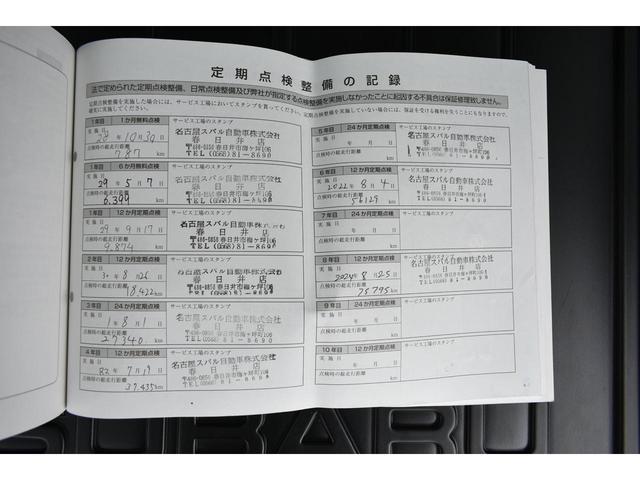 定期点検整備の記録
法で定められた定期点検整備、日常点検整備及び弊社が指定する点検整備を実施しなかったことに起因する不具合は保証修理致しません。
定期点検整備を実施した場合には、サービス工場においてスタンプを貰ってください。定期点検整備を実施していない場合には、保証を受ける権利を失うことにもなりますので、
確実に実施してください。
1年目 1か月無料点検 サービス工場のスタンプ
実施日 28年10月30日
名古屋スバル自動車株式会社
春日井店
〒486-0850 春日井市梅ヶ坪106
TEL(0568)81-8690
点検時の総走行距離
787 km
1年目 6か月無料点検 サービス工場のスタンプ
実施日
29年5月7日
名古屋スバル自動車株式会社
春日井店
〒486-0850 春日井市梅ヶ坪106
TEL(0568)81-8690
点検時の総走行距離
6,399 km
1年目 12か月定期点検 サービス工場のスタンプ
実施日
29年9月17日
名古屋スバル自動車株式会社
春日井店
〒486-0850 春日井市梅ヶ坪106
TEL(0568)81-8690
点検時の総走行距離
9,874 km
2年目 12か月定期点検 サービス工場のスタンプ
実施日
30年8月26日
名古屋スバル自動車株式会社
春日井店
点検時の総走行距離
18,422 km
3年目 24か月定期点検 サービス工場のスタンプ
実施日
1年8月1日
名古屋スバル自動車株式会社
春日井店
点検時の総走行距離
27340 km
4年目 12か月定期点検 サービス工場のスタンプ
実施日
R2年7月19日
名古屋スバル自動車株式会社
春日井店
点検時の総走行距離
37,435 km
5年目 24か月定期点検 サービス工場のスタンプ
実施日
年 月 日
名古屋スバル自動車株式会社
春日井店
点検時の総走行距離
km
6年目 12か月定期点検 サービス工場のスタンプ
実施日
2022年8月4日
名古屋スバル自動車株式会社
春日井店
点検時の総走行距離
56129 km
7年目 24か月定期点検 サービス工場のスタンプ
実施日
年 月 日
点検時の総走行距離
km
8年目 12か月定期点検 サービス工場のスタンプ
実施日
名古屋スバル自動車株式会社
春日井店
点検時の総走行距離
75795 km
9年目 24か月定期点検 サービス工場のスタンプ
実施日
年 月 日
点検時の総走行距離
km
10年目 12か月定期点検 サービス工場のスタンプ
実施日
年 月 日
点検時の総走行距離
km